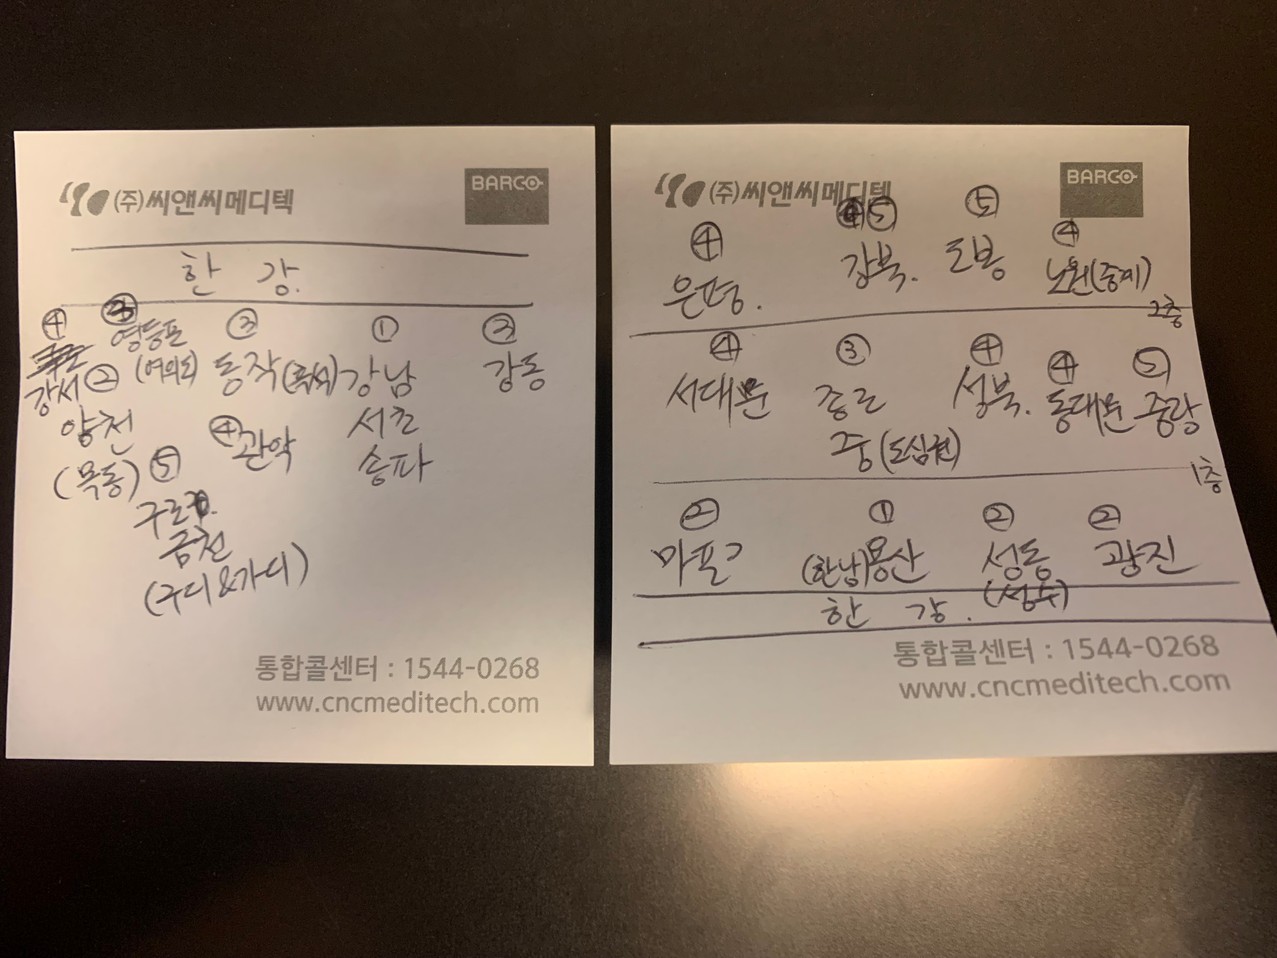 (주)씨앤씨메디텍
BARCO
한 강.
④ ③ ③ ① ③
영등포
강서 (여의도) 동작 강남 강동
② 양천 서초
(목동) ④ 관악 송파
⑤
구로
금천
(구디&가디)
통합콜센터 : 1544-0268
www.cncmeditech.com
(주)씨앤씨메디텍
BARCO
④ ⑤ ⑤ ④
은평. 강북. 도봉 노원(중계)
2층
④ ③ ④ ④ ⑤
서대문 종로 성북. 동대문 중랑
중(도심권)
1층
② ① ② ②
마포구 (한남)용산 성동 광진
(성수)
한 강.
통합콜센터 : 1544-0268
www.cncmeditech.com